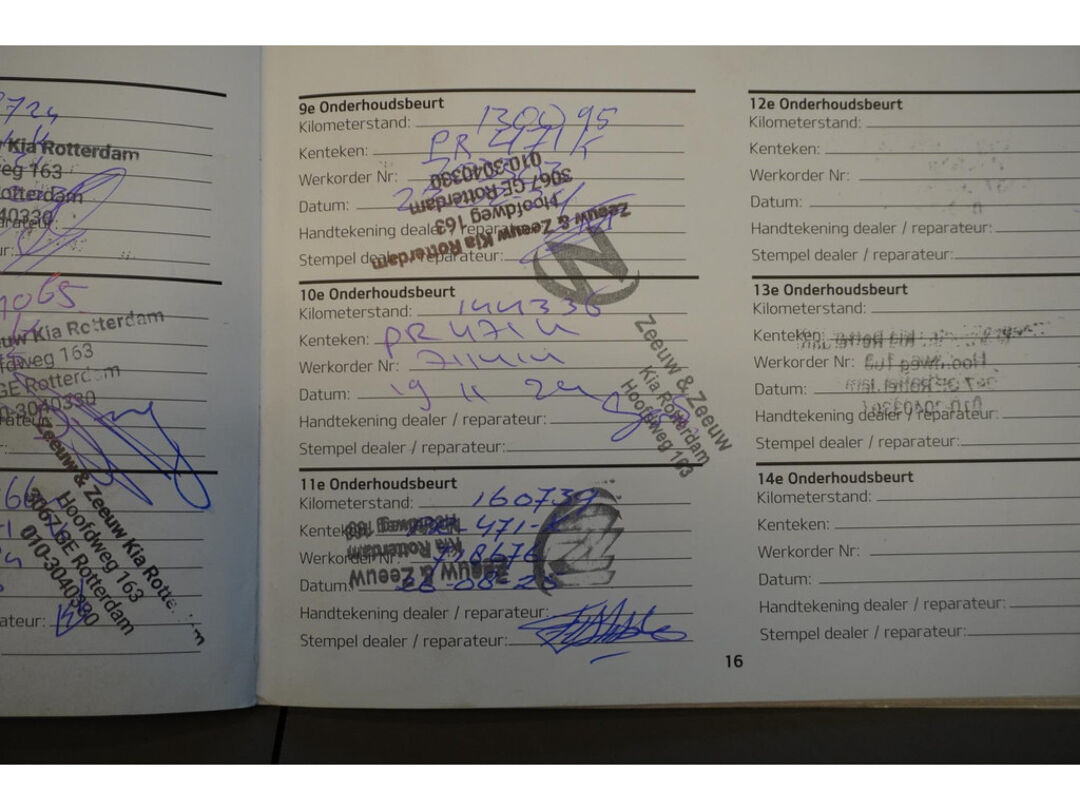 Kia Rotterdam
163
Rotterdam
uw Kia Rotterdam
fdweg 163
GE Rotterdam
0-3040330
Zeeuw & Zeeuw Kia Rotte
Hoofdweg 163
3067 GE Rotterdam
010-3040330
9e Onderhoudsbeurt
Kilometerstand: 130095
Kenteken: PR 471 K
Werkorder Nr:
Datum:
Handtekening dealer / reparateur:
Stempel dealer / reparateur:
Zeeuw & Zeeuw Kia Rotterdam
Hoofdweg 163
3067 GE Rotterdam
010-3040330
10e Onderhoudsbeurt
Kilometerstand: 144336
Kenteken: PR 471 K
Werkorder Nr:
Datum: 19 11 24
Handtekening dealer / reparateur:
Stempel dealer / reparateur:
Zeeuw & Zeeuw
Kia Rotterdam
Hoofdweg 163
11e Onderhoudsbeurt
Kilometerstand: 160739
Kenteken: 471-K
Werkorder Nr: 728676
Datum: 26-08-25
Handtekening dealer / reparateur:
Stempel dealer / reparateur:
Zeeuw & Zeeuw
Kia Rotterdam
Hoofdweg 163
16
12e Onderhoudsbeurt
Kilometerstand:
Kenteken:
Werkorder Nr:
Datum:
Handtekening dealer / reparateur:
Stempel dealer / reparateur:
13e Onderhoudsbeurt
Kilometerstand:
Kenteken:
Werkorder Nr:
Datum:
Handtekening dealer / reparateur:
Stempel dealer / reparateur:
14e Onderhoudsbeurt
Kilometerstand:
Kenteken:
Werkorder Nr:
Datum:
Handtekening dealer / reparateur:
Stempel dealer / reparateur: